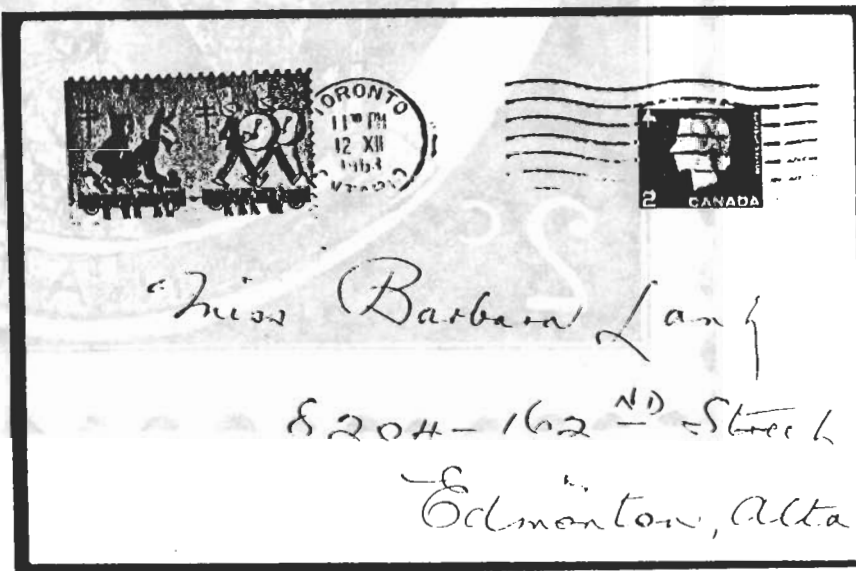 TORONTO
11 PM
12 XII
1963
ONTARIO
4
2 CANADA
Miss Barbara Lang
8204-162ND Street
Edmonton, Alta
2c